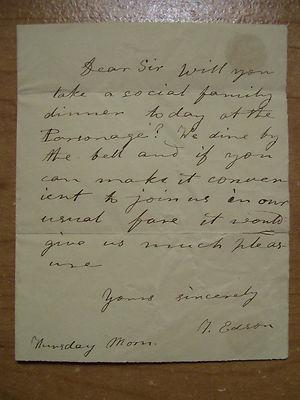 Dear Sir Will you
take a social family
dinner today at the
Parsonage? We dine by
the bell and if you
can make it conven
ient to join us in our
usual fare it would
give us much pleas
ure
Yours sincerely
T. Edson
Thursday Morn.